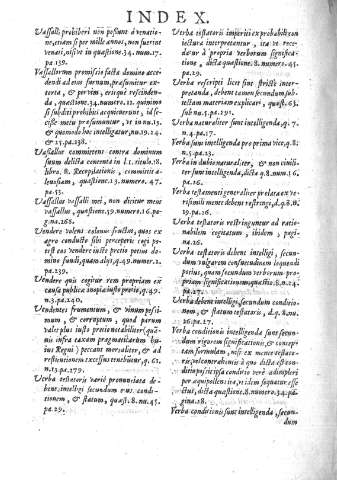 INDEX.
Vassalli prohiberi non possunt à venatione, etiam si per mille annos, non fuerint venati, nisi ve in quæstione. 34. num. 17.
pa. 139.
Vassallorum promissio facta domino accedendi ad eius
e quæstione. 34. numero. 22. quinimo
si subditi prohibiti acquieverunt, id
& quomodo hoc intelligatur, nu. 19. 24.
& 25. pa. 138.
Vassallus committens contra dominum
suum delicta contenta in l. 1. titulo. 18.
libro. 8. Recopilationis, committit
quæstione. 13. numero. 47.
pa. 55.
Vassallus vassalli mei, non dicitur meus
vassallus, quæstione. 59. numero. 16. pagina. 268.
Vendere volens colonus fructus, quos ex
agro conducto sibi percepere
est eos vendere iusto precio petens domino
fundi, quam alijs, q. 49. numer. 2.
pa. 239.
Vendere quis cogitur rem propriam ex
causa publica inopia iusto precio, q. 49.
n. 3. pa. 240.
Vendentes frumentum, & vinum pessimum, & corruptum, quod parum
valet plus iusto precio
infra taxam pragmaticarum huius Regni) peccant mortaliter, & ad
restitutionem excessus tenentur, q. 61.
n. 13. pa. 279.
Verba testatoris varie pronuciata debent intelligi secundum eius conditionem, & statum, quæst. 8. nu. 45.
pa. 29.
Verba testatoris imperiti ex probabili coniectura interpretantur, ita ve recedatur à propria verborum significatione, dicta quæstione. 8. numero. 45.
pa. 29.
Verba rescripti licet sint stricte interpretanda, debent tamen secundum subiectam materiam explicari, quæst. 63.
sub nu. 5. pa. 291.
Verba naturaliter sunt intelligenda, q. 7.
n. 4. pa. 17.
Verba sunt intelligenda pro prima vice, q. 8.
n. 5. pa. 25.
Verba in dubio naturaliter, & non civiliter sunt intelligenda, dicta q. 8. num. 16.
pa. 26.
Verba testamenti generaliter prolata ex verisimili mente debent restringi, d. q. 8. n.
19. pa. 26.
Verba testatoris restringuntur ad rationabilem cogitatum, ibidem, pagina. 26.
Verba testatoris debent intelligi, secundum vulgarem consuetudinem loquendi
potius, quam secundum verborum propriam significationem, quæstio. 8. n. 24.
pa. 27.
Verba debent intelligi, secundum conditionem, & statum testatoris, d. q. 8. nu.
26. pa. 27.
Verba conditionis intelligenda sunt secundum vigorem significationis, & conceptam formulam, nisi ex mente testatoris
ditio possit ipsa conditio vere adimpleri
per aequipollens
dicta quæstione. 8. numero. 34. pagina. 28.
Verba condicionis sunt intelligenda, secundum